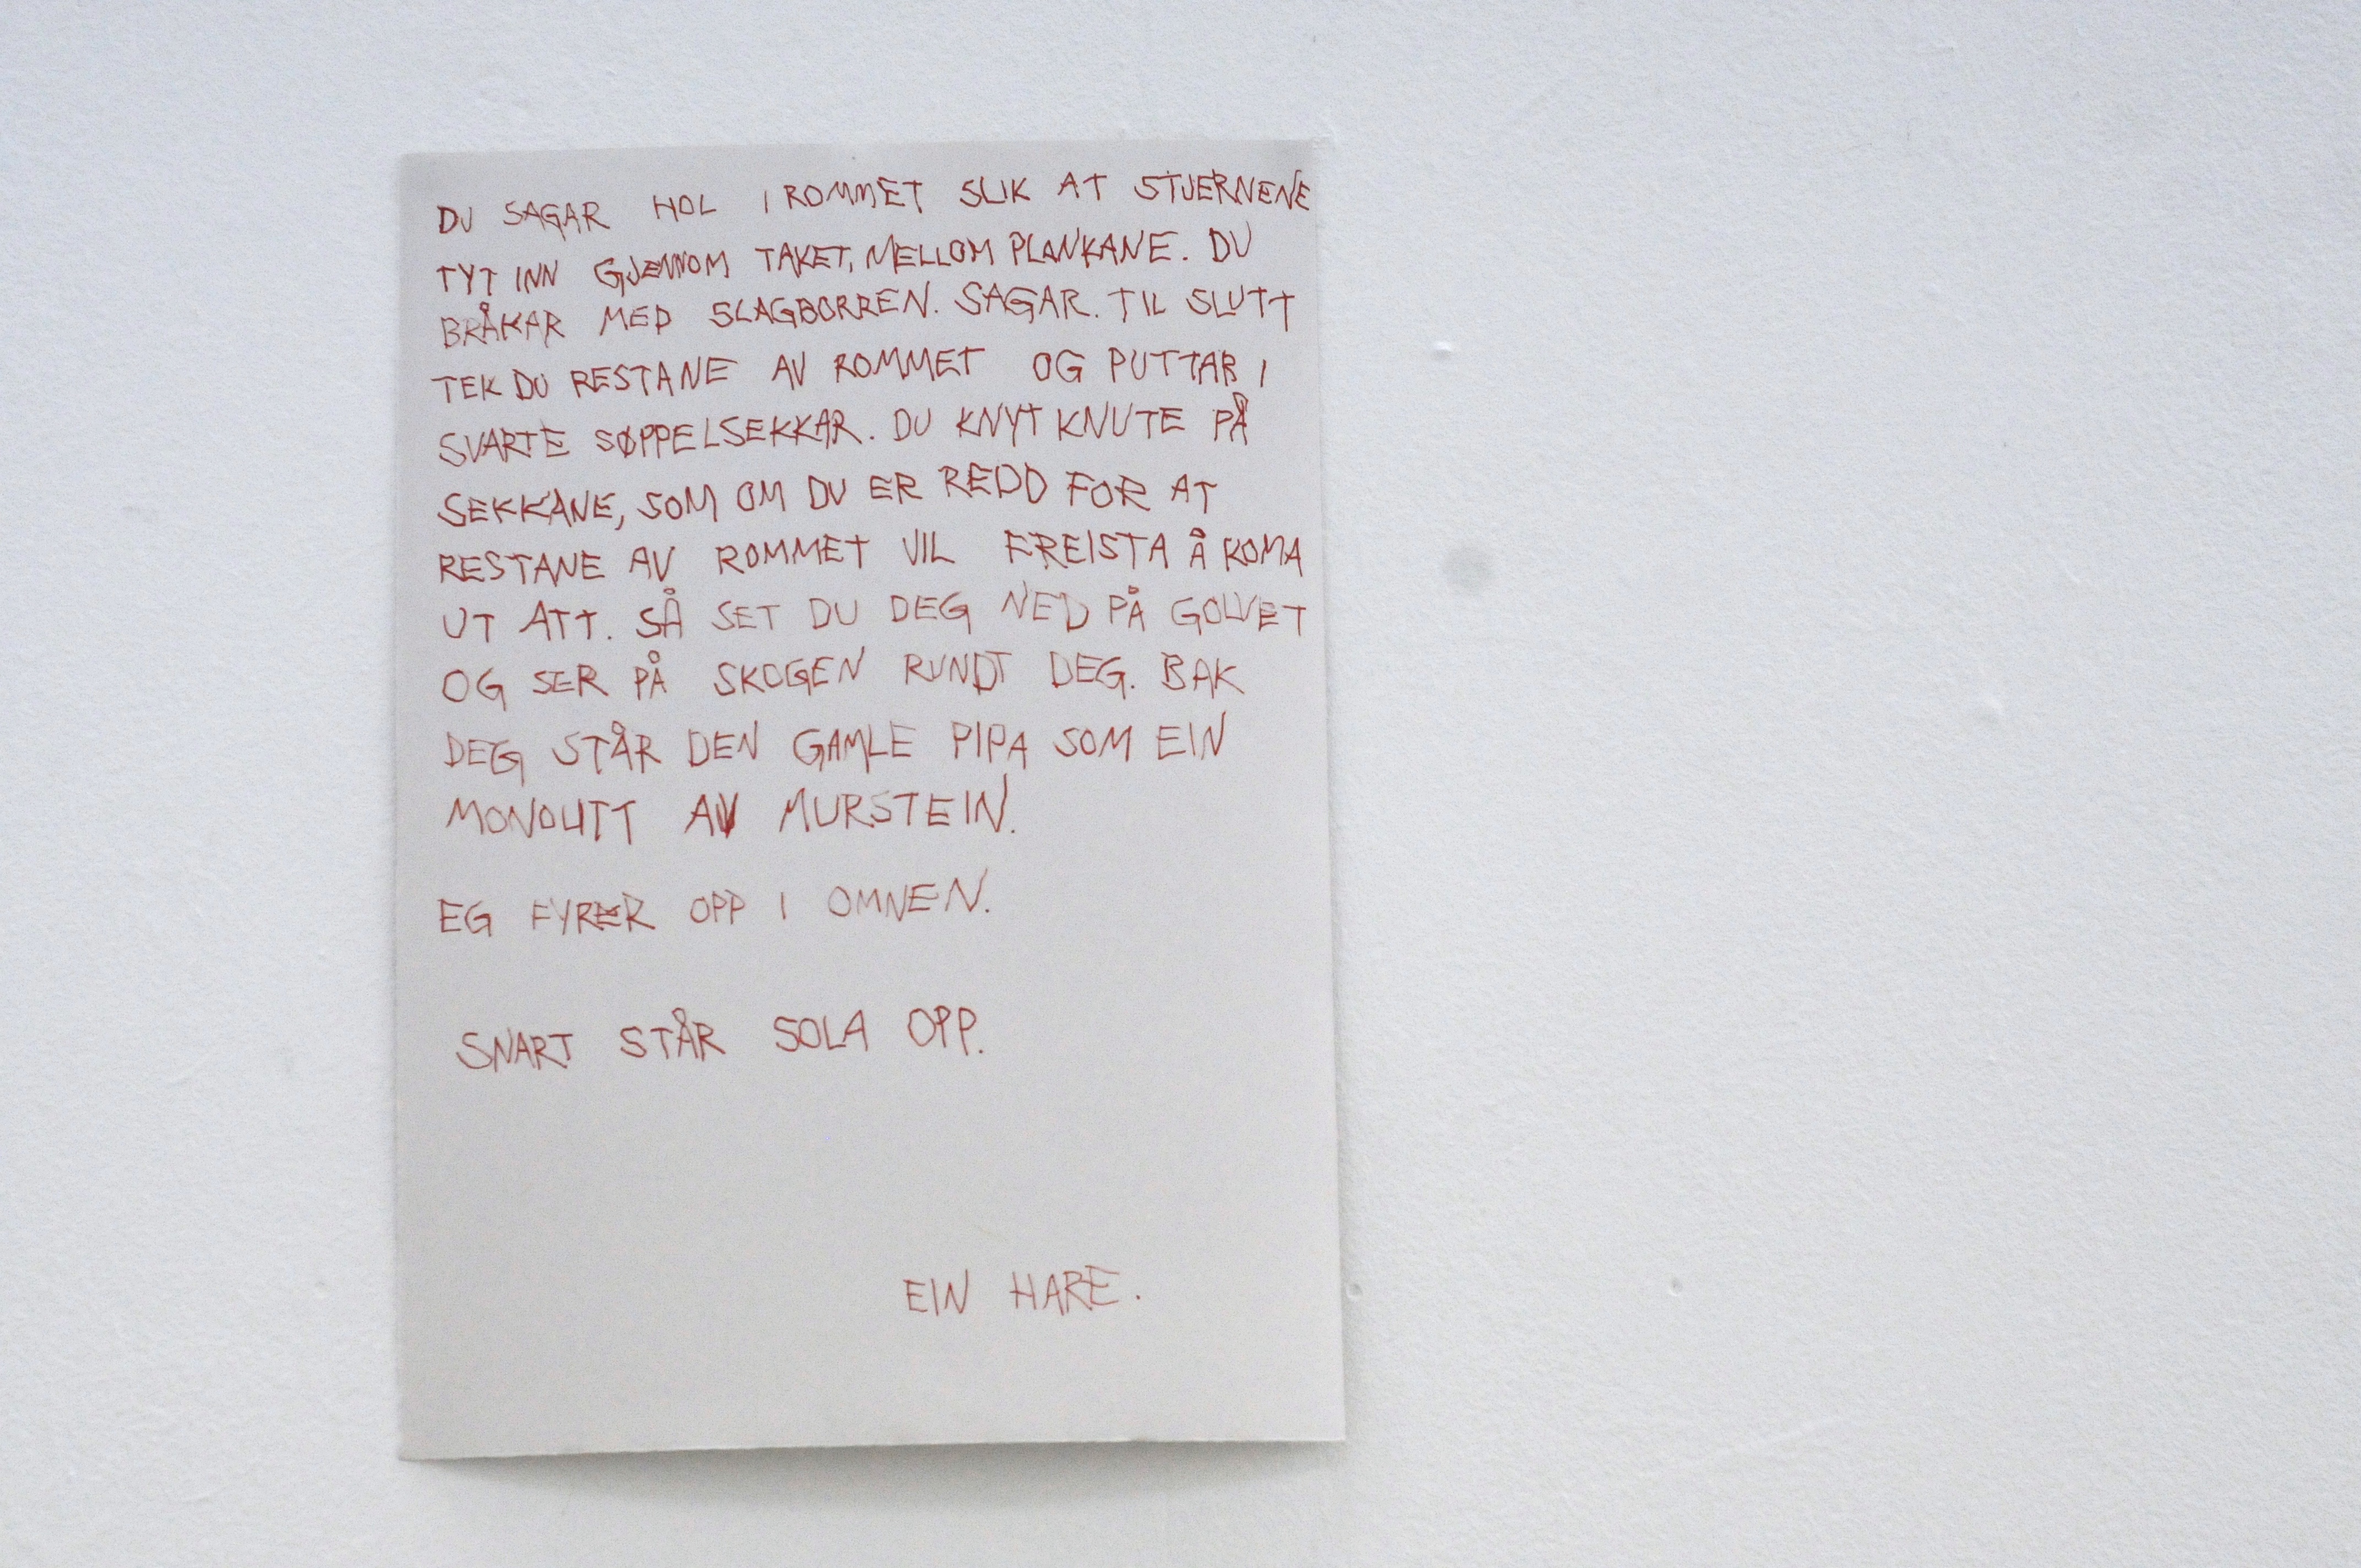 DU SAGAR HOL I ROMMET SLIK AT STJERNENE
TYT INN GJENNOM TAKET, MELLOM PLANKANE. DU
BRÅKAR MED SLAGBORREN. SAGAR. TIL SLUTT
TEK DU RESTANE AV ROMMET OG PUTTAR I
SVARTE SØPPELSEKKAR. DU KNYT KNUTE PÅ
SEKKANE, SOM OM DU ER REDD FOR AT
RESTANE AV ROMMET VIL FREISTA Å KOMA
UT ATT. SÅ SET DU DEG NED PÅ GOLVET
OG SER PÅ SKOGEN RUNDT DEG. BAK
DEG STÅR DEN GAMLE PIPA SOM EIN
MONOLITT AV MURSTEIN.
EG FYRER OPP I OMNEN.
SNART STÅR SOLA OPP.
EIN HARE.